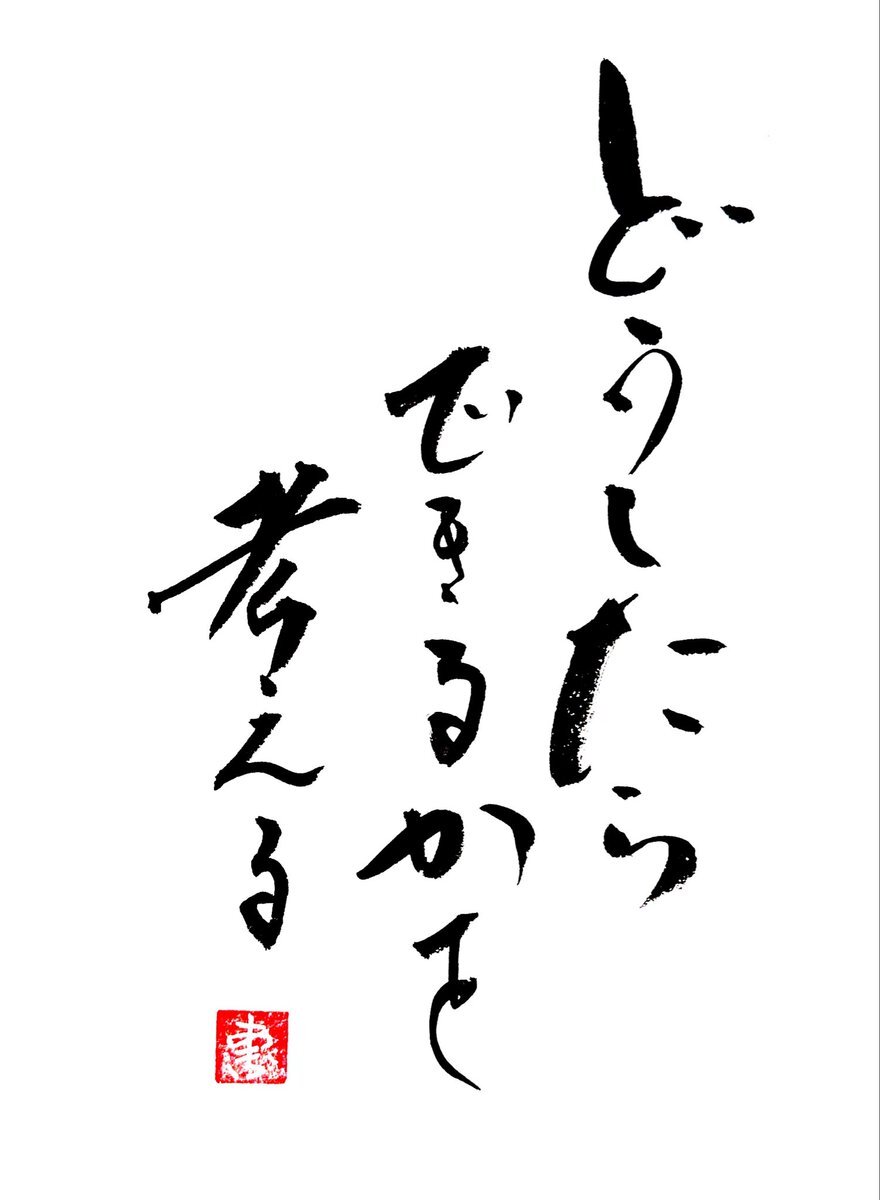 どうしたら
できるかを
考える